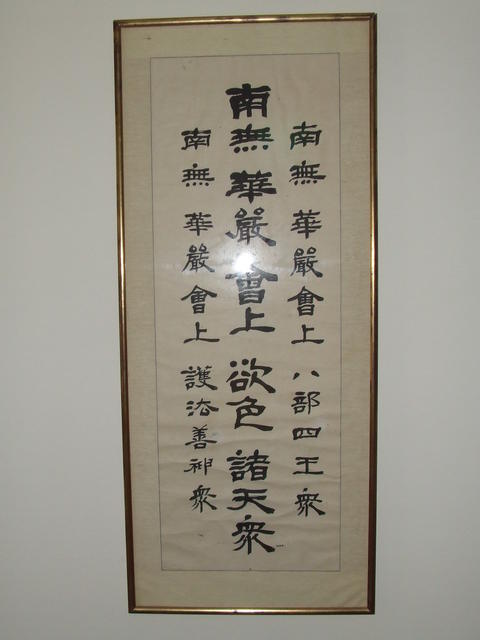 南無華嚴會上八部四王衆
南無華嚴會上欲色諸天衆
南無華嚴會上護法善神衆